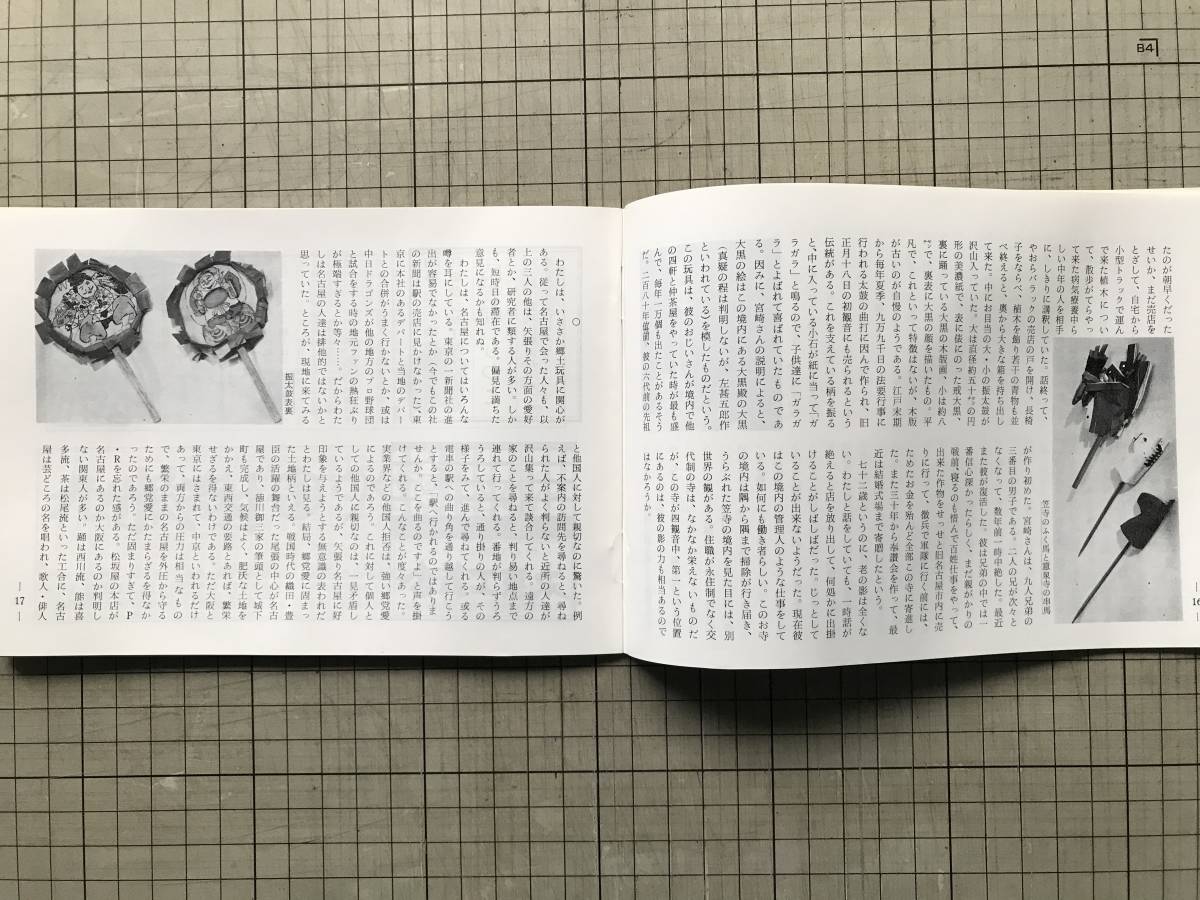 B4
たのが朝早くだった
せいか、まだ売店を
とざして、自宅から
小型トラックで運ん
で来た植木につい
て、散歩がてらやっ
て来た病気療養中ら
しい中年の人を相手
に、しきりに講釈していた。話終って、
やおらバラックの売店の戸を開け、長椅
子をならべ、植木を飾り若干の青物も並
べ終えると、奥から大きな箱を持ち出し
て来た。中にお目当の大・小の振太鼓が
沢山入っていた。大は直径約五十㍉の円
形の美濃紙で、表に俵にのった戎大黒、
裏に踊っている大黒の木版画、小は約八
㌢で、裏表に大黒の顔を描いたもの。平
凡で、これといって特徴はないが、木版
が古いのが自慢のようである。江戸末期
から毎年夏季、九万九千日の法要行事に
行われる太鼓の曲打に因んで作られ、旧
正月十八日の初観音にも売られるという
伝統がある。これを支えている柄を振る
と、中に入っている小石が紙に当って「ガ
ラガラ」と鳴るので、子供達に「ガラガ
ラ」とよばれて喜ばれていたものであ
る。因みに、宮崎さんの説明によると、
大黒の絵はこの境内にある大黒殿の大黒
(真疑の程は判明しないが、左甚五郎作
といわれている)を模したものだという。
この玩具は、彼のおじいさんが境内で他
の四軒と仲茶屋をやっていた時が最も盛
んで、毎年一万個も出たことがあるそう
だ。二百八十年位前、彼の六代前の先祖
笠寺のふく馬と竜泉寺の串馬
が作り初めた。宮崎さんは、九人兄弟の
三番目の男子である。二人の兄が次々と
なくなって、数年前一時中絶した。最近
また彼が復活した。彼は兄弟の中では一
番信心深かったらしく、まだ親がかりの
戦前、寝るのも惜んで百姓仕事をやって、
出来た作物をせっせと旧名古屋市内に売
りに行って、徴兵で軍隊に行く前には、
ためたお金を殆んど全部この寺に寄進し
た。また三十年から奉讃会を作って、最
近は結婚式場まで寄贈したという。
七十二歳というのに、老の影は全くな
い。わたしと話をしていても、一時話が
絶えると店を放り出して、何処かに出掛
けることがしばしばだった。じっとして
いることが出来ないようだった。現在彼
はこの境内の管理人のような仕事をして
いる。如何にも働き者らしい。このお寺
の境内は隅から隅まで掃除が行き届き、
うらぶれた笠寺の境内を見た目には、別
世界の観がある。住職が永住制でなく交
代制の寺は、なかなか栄えないものだ
が、この寺が四観音中、第一という位置
にあるのは、彼の影の力も相当あるので
はなかろうか。
16
○
わたしは、いささか郷土玩具に関心が
ある。従って名古屋で会った人々も、以
上の三人の他は、矢張りその方面の愛好
者とか、研究者に類する人が多い。しか
も、短時日の滞在である。偏見に満ちた
意見になるかも知れぬ。
わたしは、名古屋についてはいろんな
噂を耳にしている。東京の一新聞社の進
出が容易でなかったとか(今でもこの社
の新聞は駅の売店に見かけなかった)、東
京に本社のあるデパートと当地のデパー
トとの合併がうまく行かないとか、或は
中日ドラゴンズが他の地方のプロ野球団
と試合をする時の地元ファンの熱狂ぶり
が極端すぎるとか等々……。だからわた
しは名古屋の人達は排他的ではないかと
思っていた。ところが、現地に来てみる
振太鼓表裏
と他国人に対して親切なのに驚いた。例
えば、不案内の訪問先を尋ねると、尋ね
られた人がよく判らないと近所の人達が
沢山集って来て談合してくれる。遠方の
家のことを尋ねると、判り易い地点まで
連れて行ってくれる。番地が判らずうろ
うろしていると、通り掛りの人が、その
様子をみて、進んで尋ねてくれる。或る
電車の駅への曲り角を通り越して行こう
とすると、「駅へ行かれるのではありま
せんか。ここを曲るのですよ」と声を掛
けてくれる。こんなことが度々あった。
実業界などの他国人拒否は、強い郷党愛
によるのであろう。これに対して個人と
しての他国人に親切なのは、一見矛盾し
ているようであるが、矢張り名古屋に好
印象を与えようとする無意識の表われだ
とわたしは見る。結局、郷党愛に固まっ
た土地柄といえる。戦国時代の織田・豊
臣の活躍の舞台だった尾張の中心が名古
屋であり、徳川御三家の筆頭として城下
町も完成し、気候はよく、肥沃な土地を
かかえ、東西交通の要路とあれば、繁栄
せざるを得ないわけである。ただ大阪と
東京にはさまれて、中京といわれるだけ
あって、両方からの圧力は相当なもの
で、繁栄のままの名古屋を外圧から守る
ためにも郷党愛にかたまらざるを得なか
ったのであろう。ただ固まりすぎて、P
・Rを忘れた感がある。松坂屋の本店が
名古屋にあるのか大阪にあるのか判明し
ない関東人が多い。踊は西川流、能は喜
多流、茶は松尾流といった工合に、名古
屋は芸どころの名を唄われ、歌人・俳人
17